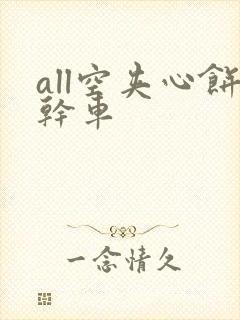 all空夹心餅
幹車
一念情久